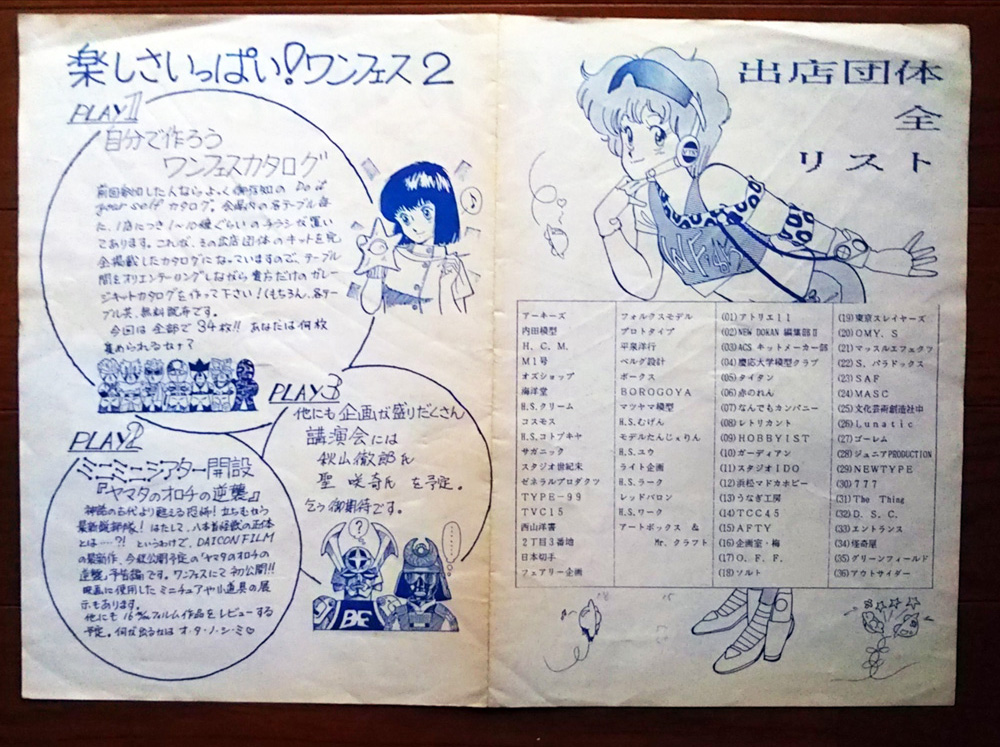 楽しさいっぱい!ワンフェス2
PLAY1
自分で作ろう
ワンフェスカタログ
前回参加した人ならよーく御存知の Do it
your self カタログ。会場内の各テーブルには
た、1店につき1〜10種ぐらいのチラシが置い
てあります。これが、その出店団体のキットを完
全掲載したカタログになっていますので、テーブル
間をオリエンテーリングしながら貴方だけのガレー
ジキットカタログを作って下さい!(もちろん、各テー
ブル共、無料配布です。
今回は全部で34枚!! あなたは何枚
集められるかナ?
PLAY2
ミニミニシアター開設
『ヤマタのオロチの逆襲』
神話の古代より甦える恐怖! 立ちむかう
最新鋭部隊! はたして、八本首怪獣の正体
とは…?! というわけで、DAICON FILM
の最新作、今秋公開予定の「ヤマタのオロチの
逆襲」予告編です。ワンフェスにて初公開!!
映画に使用したミニチュアや小道具の展
示もあります。
他にも16%フィルム作品をレビューする
予定。何が出るかはオ・タ・ノ・シ・ミ♡
PLAY3
他にも企画が盛りだくさん
講演会には
秋山徹郎氏
聖咲奇氏 を予定。
乞う御期待です。
?
BF
出店団体
全
リスト
WF'85
アーキーズ
内田模型
H. C. M.
M1号
オズショップ
海洋堂
H.S.クリーム
コスモス
H.S.コトブキヤ
サガニック
スタジオ世紀末
ゼネラルプロダクツ
TYPE-99
TVC15
西山洋書
2丁目3番地
日本切手
フェアリー企画
フォルクスモデル
プロトタイプ
平泉洋行
ベルグ設計
ボークス
BOROGOYA
マツヤマ模型
H.S.むげん
モデルたんじぇりん
H.S.ユウ
ライト企画
H.S.ラーク
レッドバロン
H.S.ワーク
アートボックス &
Mr. クラフト
(01)アトリエ11
(02)NEW DOKAN 編集部Ⅱ
(03)ACS キットメーカー部
(04)慶応大学模型クラブ
(05)タイタン
(06)赤のれん
(07)なんでもカンパニー
(08)レトリカント
(09)HOBBYIST
(10)ガーディアン
(11)スタジオIDO
(12)浜松マドカホビー
(13)うなぎ工房
(14)TCC45
(15)AFTY
(16)企画室・梅
(17)O. F. F.
(18)ソルト
(19)東京スレイヤーズ
(20)OMY. S
(21)マッスルエフェクツ
(22)S. パラドックス
(23)SAF
(24)MASC
(25)文化芸術創造社中
(26)Lunatic
(27)ゴーレム
(28)ジュニアPRODUCTION
(29)NEWTYPE
(30)777
(31)The Thing
(32)D. S. C.
(33)エントランス
(34)怪奇屋
(35)グリーンフィールド
(36)アウトサイダー